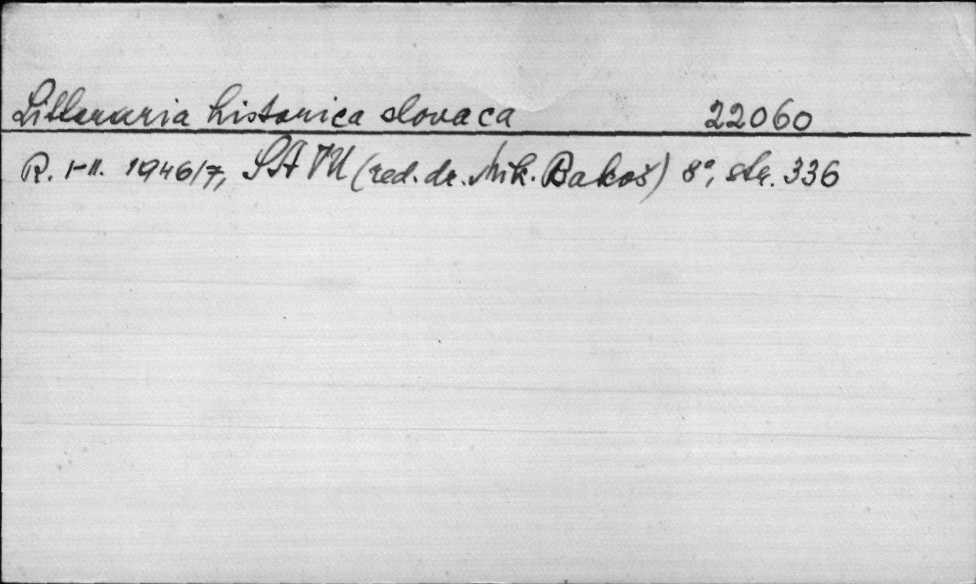 Litteraria historica slovaca 22060
R. I-II. 1946/7, SAVU (red. dr. Mik. Bakoš) 8°, str. 336